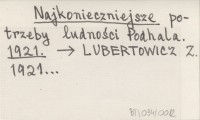 Najkonieczniejsze po-
trzeby ludności Podhala.
1921. → LUBERTOWICZ Z.
1921...